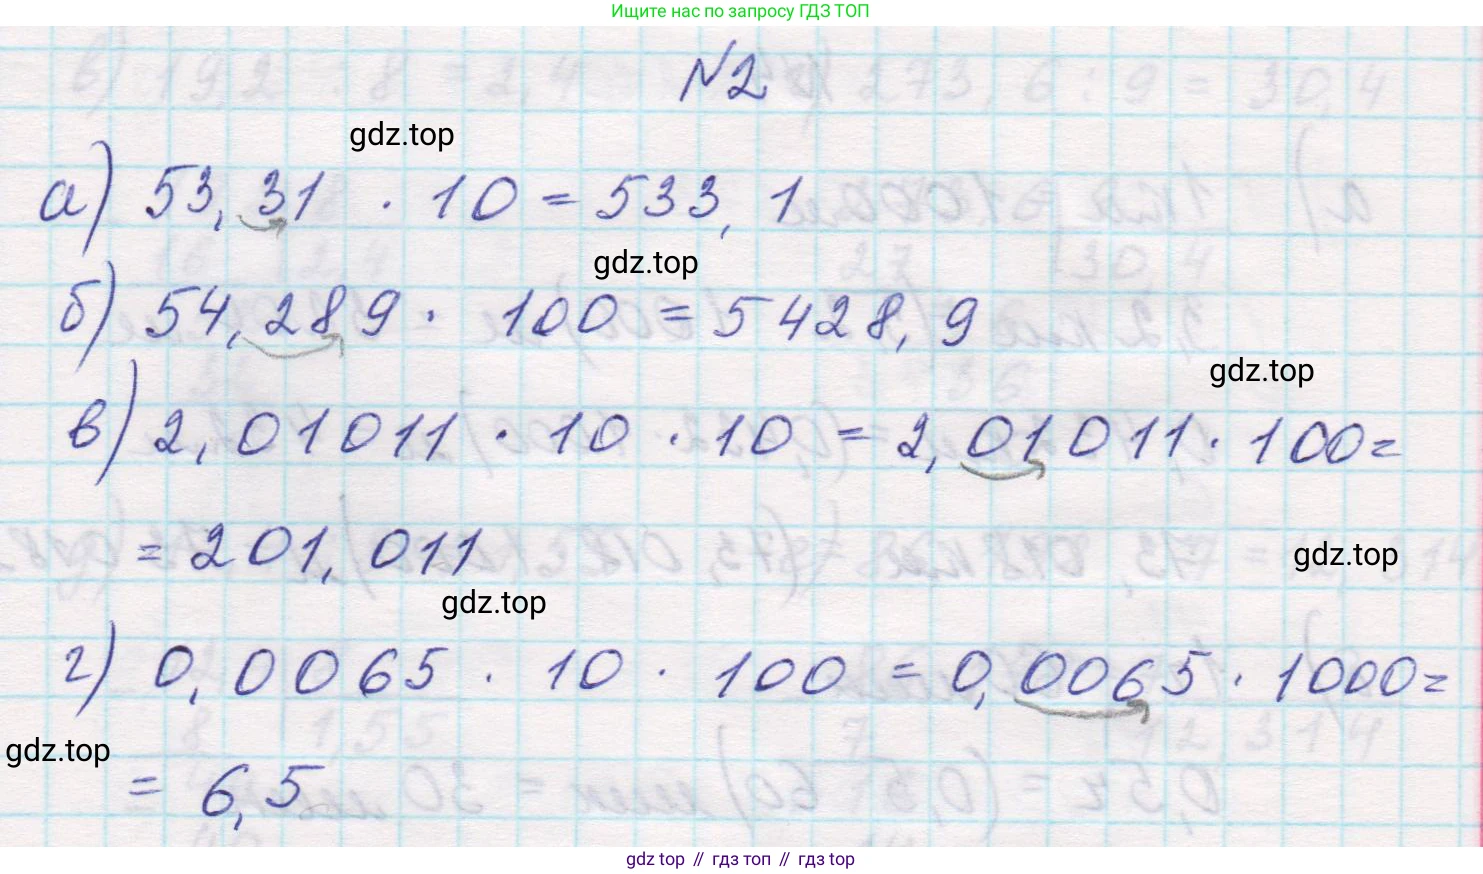 Ищите нас по запросу ГДЗ ТОП
№2
gdz.top
а) 53,31 · 10 = 533,1
gdz.top
б) 54,289 · 100 = 5428,9
gdz.top
в) 2,01011 · 10 · 10 = 2,01011 · 100 =
= 201,011
gdz.top
gdz.top
г) 0,0065 · 10 · 100 = 0,0065 · 1000 =
gdz.top
= 6,5
gdz top // гдз топ // gdz top